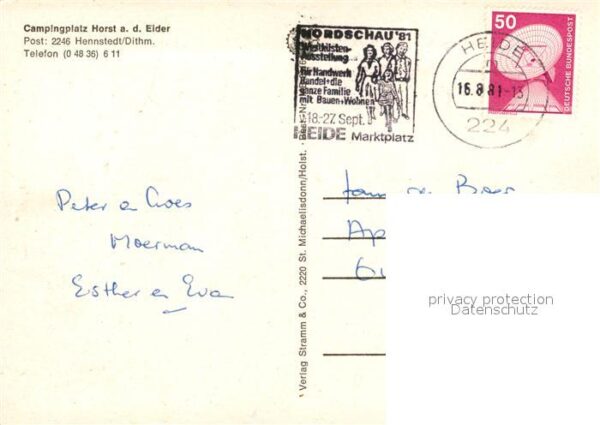 Campingplatz Horst a. d. Eider
Post: 2246 Hennstedt/Dithm.
Telefon (0 48 36) 6 11
NORDSCHAU '81
Westküsten-
Ausstellung
für Handwerk
Handel+die
ganze Familie
mit Bauen+Wohnen
18.-27. Sept.
HEIDE Marktplatz
HEIDE
16.8.81-13
224
50
DEUTSCHE BUNDESPOST
Peter en
Moerman
Esther en Eva
Verlag Stramm & Co., 2220 St. Michaelisdonn/Holst.
privacy protection
Datenschutz